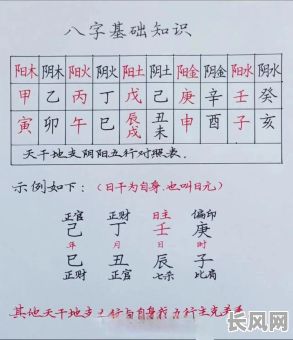 八字基础知识
阳木 阴木 阳火 阴火 阳土 阴土 阳金 阴金 阳水 阴水
甲 乙 丙 丁 戊 己 庚 辛 壬 癸
寅 卯 午 巳 辰戌 丑未 申 酉 子 亥
天干地支阴阳五行对照表.
示例如下: (日干为自身.也叫日元)
正官 正财 日主 偏印
己 丁 壬 庚
年 月 日 时
巳 丑 辰 子
正财 正官 七杀 比肩
其他天干地支五行与自身
长风网